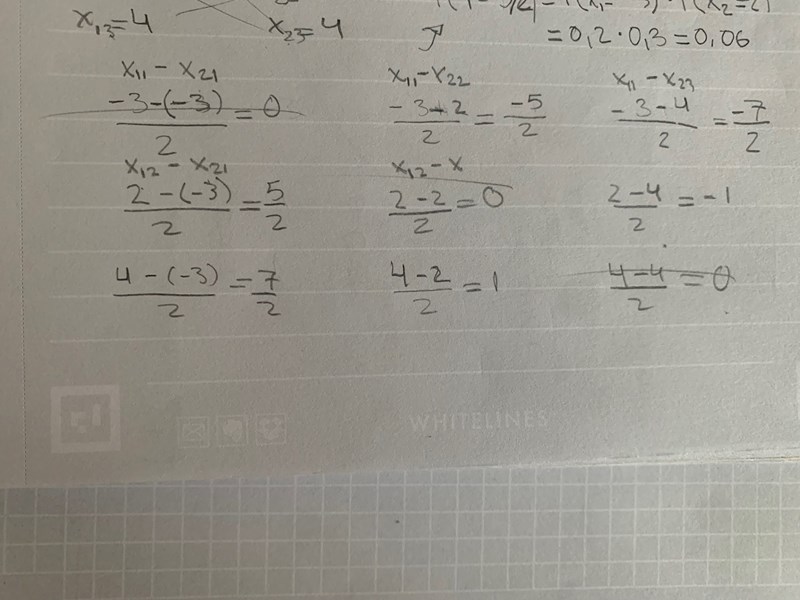 x₁₃=4 x₂₃=4
= 0,2 · 0,3 = 0,06
x₁₁ - x₂₁ x₁₁-x₂₂ x₁₁ - x₂₃
-3-(-3)/2 = 0 -3-2/2 = -5/2 -3-4/2 = -7/2
x₁₂ - x₂₁ x₁₂-x
2-(-3)/2 = 5/2 2-2/2 = 0 2-4/2 = -1
4-(-3)/2 = 7/2 4-2/2 = 1 4-4/2 = 0
WHITELINES